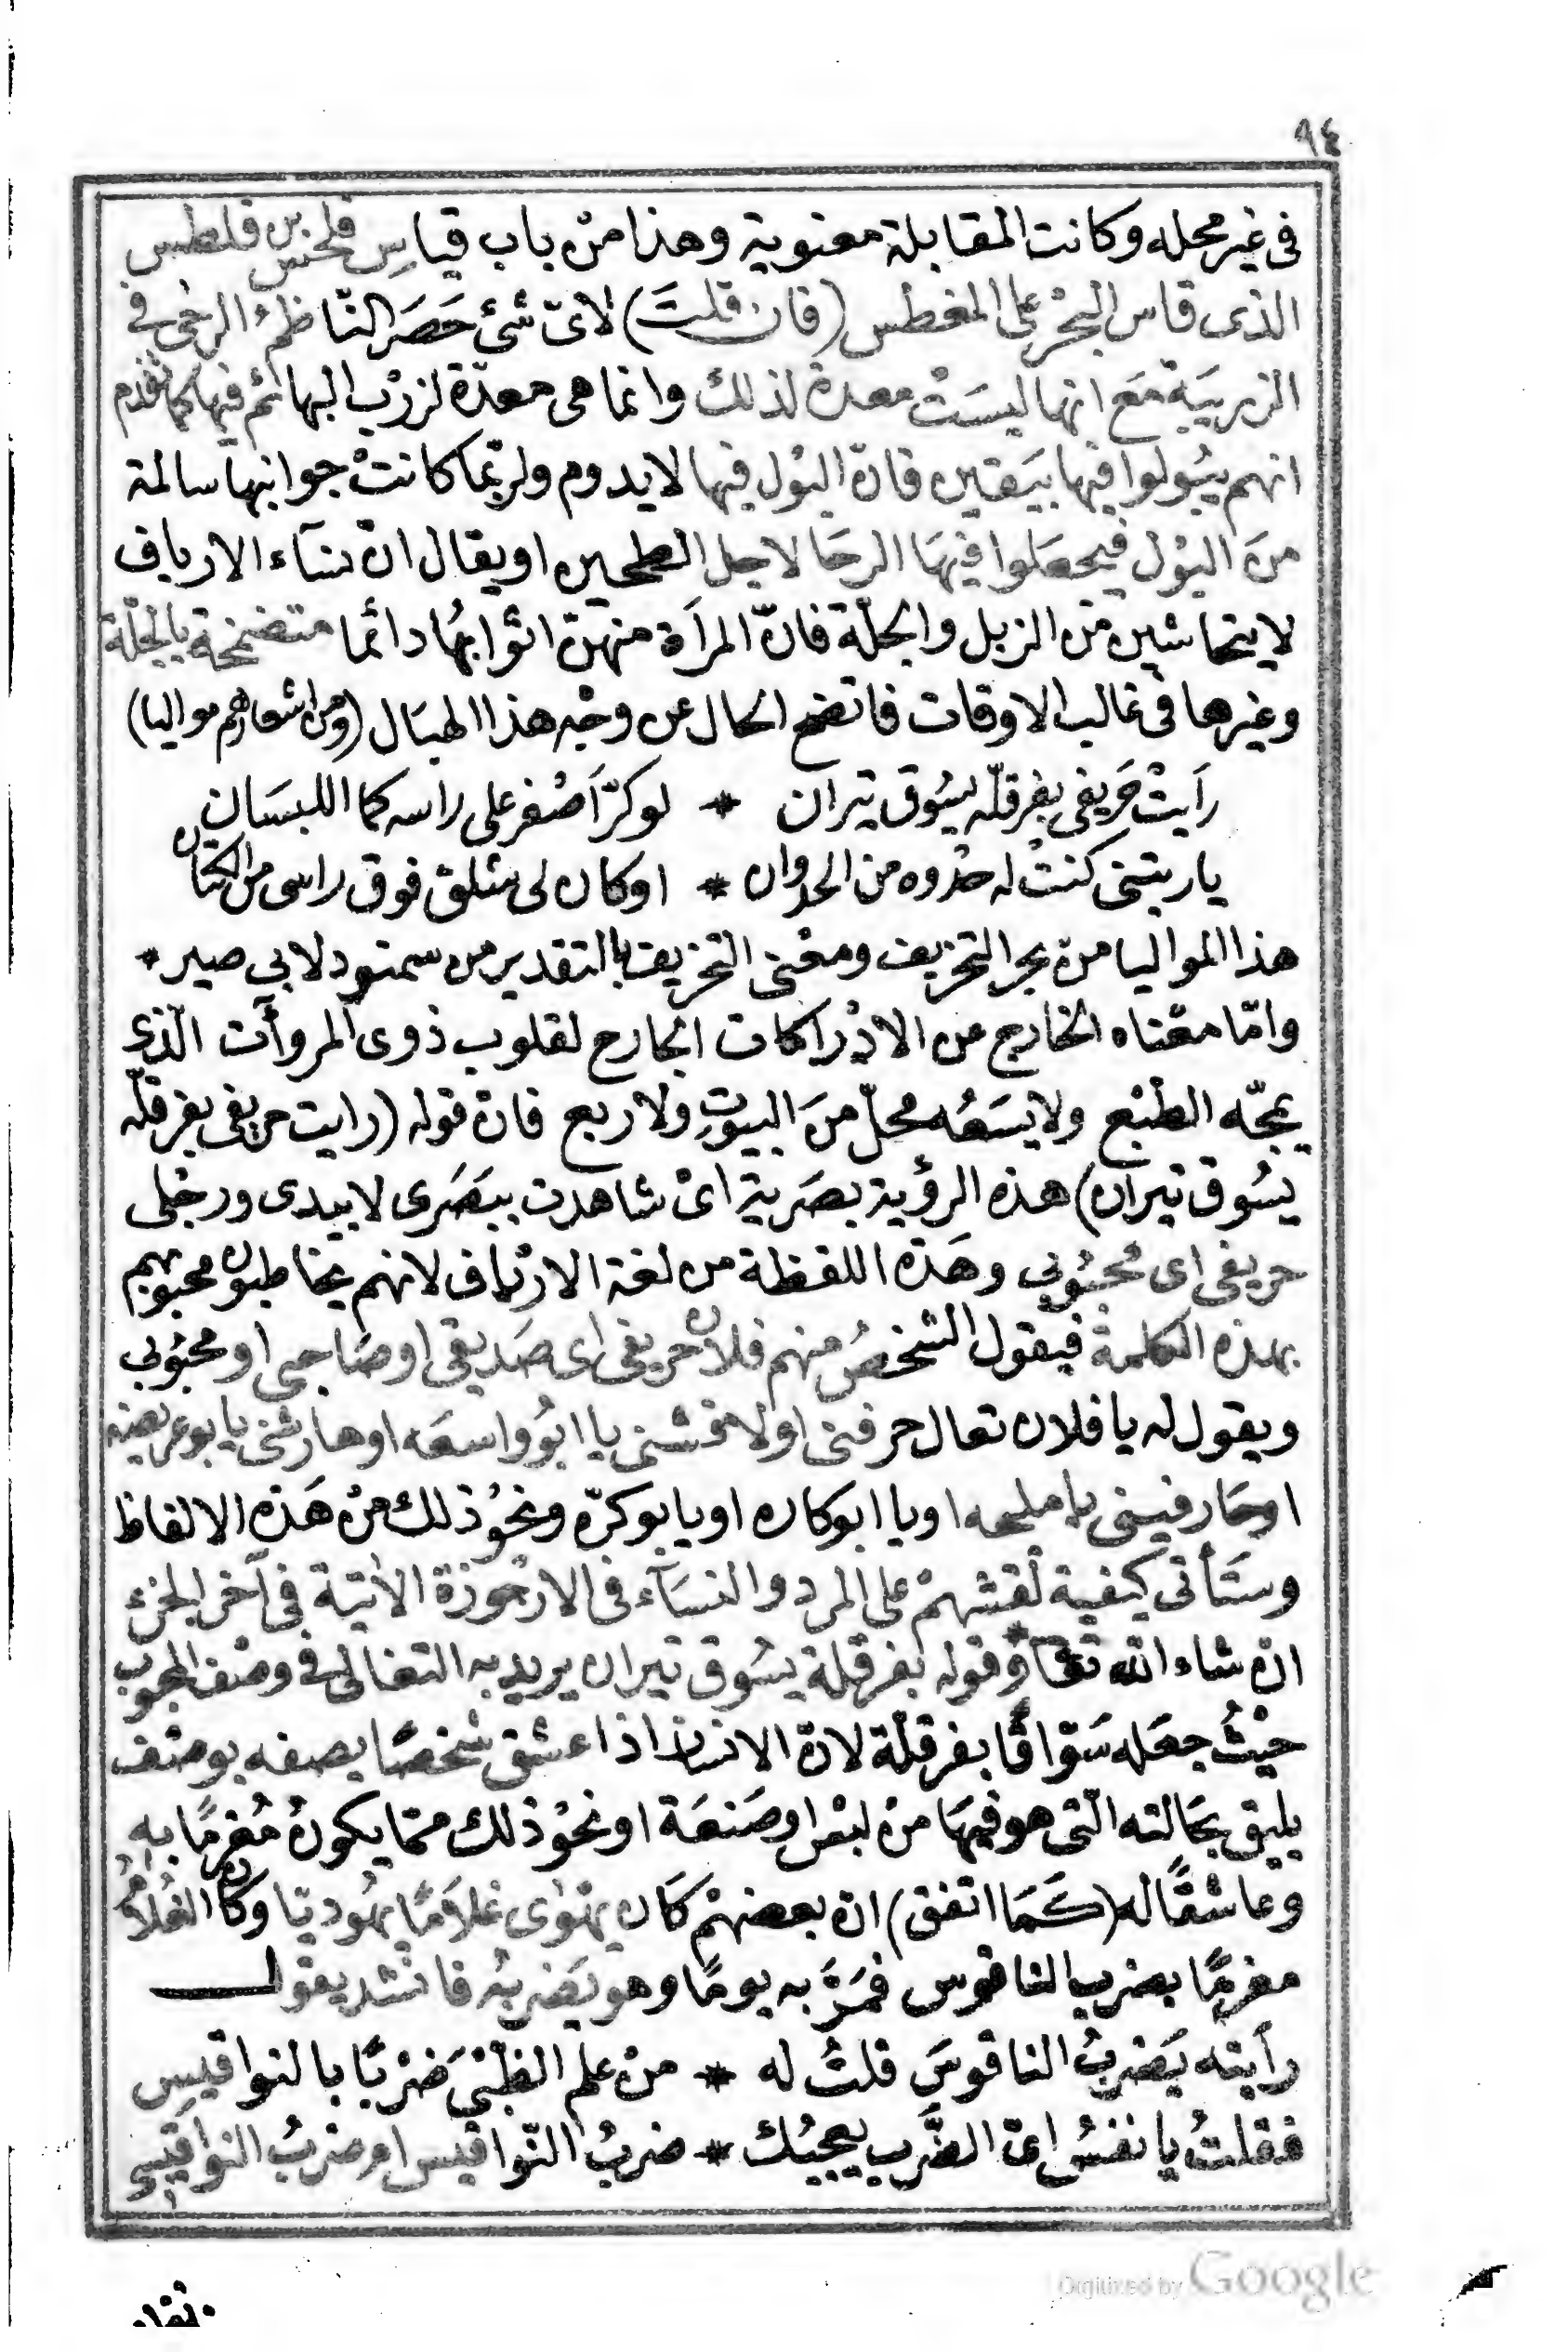 ٩٤
فى غير محله وكانت المقابلة معنوية وهذا من باب قياس فلحس بن فلطس
الذى قاس البحر على المغطس (فان قلت) لاىّ شئ حَصَر النّاظمُ الرحى فى
الزريبَة مَع انها ليسَتْ معدة لذلك وانما هى معدّة لزرْب البهائم فيها كما تقدم
انهم يبُولوا فيها بيَقين فانّ البول فيها لا يدوم ولربّما كانتْ جوانبها سالمة
منَ البوْل فيجعَلوا فيهَا الرحَا لاجل الطحين او يقال انّ نسآء الارياف
لا يتحاشين من الزبل والجلّة فانّ المرأة منهنّ اثوابهُا دائما متضمخة بالجلّة
وغيرها فى غالب الاوقات فاتضح الحال عن وجْه هذا الهبَال (ومن اشعارهم مواليا)
رَايتْ حَريفى بفرقلّه يسُوق تيران * لو كرّ اَصْفر على راسه كما اللبسَان
ياريتنى كنتْ له حدْوه من الحدوان * اوكان لى شلق فوق راسى من الكتان
هذا المواليا منْ بحر التخريف ومعْنى التخزيف بالتقدير من سمنود لابى صير *
وامّا معْناه الخارج عن الادْراكات الجارح لقلوب ذوى المروآت الّذى
يمجّه الطبْع ولا يسَعُه محلّ منَ البيوتِ ولا ربع فانّ قوله (رايت حريفى بفرقلّه
يسُوق تيران) هذه الرؤية بصَرية اىْ شاهدت ببَصَرى لا بيدى ورجْلى
حريفى اى محْبُوبى وهَذه اللفظة من لغة الارْياف لانهم يخاطبون محبوبهم
بهذه الكلمة فيقول الشخصُ منهم فلان حريفى اى صَديقى او صَاحبى او محبُوبى
ويقول له يا فلان تعال حرفنى اولا مخشنى يا ابُو واسعَه اوهارشنى يا بوعريضه
اوحَارفينى يا مليحه اويا ابوكاره اويا بوكرّه ونحوُ ذلك منْ هَذه الالفاظ
وستَأتى كيفية لَقشهمْ على المرد والنسَآء فى الارْجُوزة الآتية فى آخر الجزء
ان شاء الله تعا وقوله بفرقلة يسُوق تيران يريد به التغالى فى وصْف المحبوب
حيْثُ جعَله سَوّاقًا بفرقلّة لانّ الانسان اذا عشق شخصًا يصفه بوصْف
يليق بحَالته الّتى هو فيهَا منْ لبْس اوصَنعَة اونحوُ ذلك ممّا يكونُ مُغرمًا به
وعاشقًا له (كَمَا اتفق) انّ بعضهُمْ كَان يهْوٰى غلاَمًا يهُوديّا وكان الغُلاَمُ
مغرمًا بضرب الناقوس فمَرّ به يومًا وهو يَضربُه فانشد يقول
رأيته يَضربُ الناقوسَ قلتُ له * منْ علم الظبْىَ ضَرْبًا بالنواقيسِ
فقلتُ يا نفسُ اىّ الضَّرب يعجبُك * ضربُ النّواقيس ام ضربُ النواقيسى
Digitized by Google